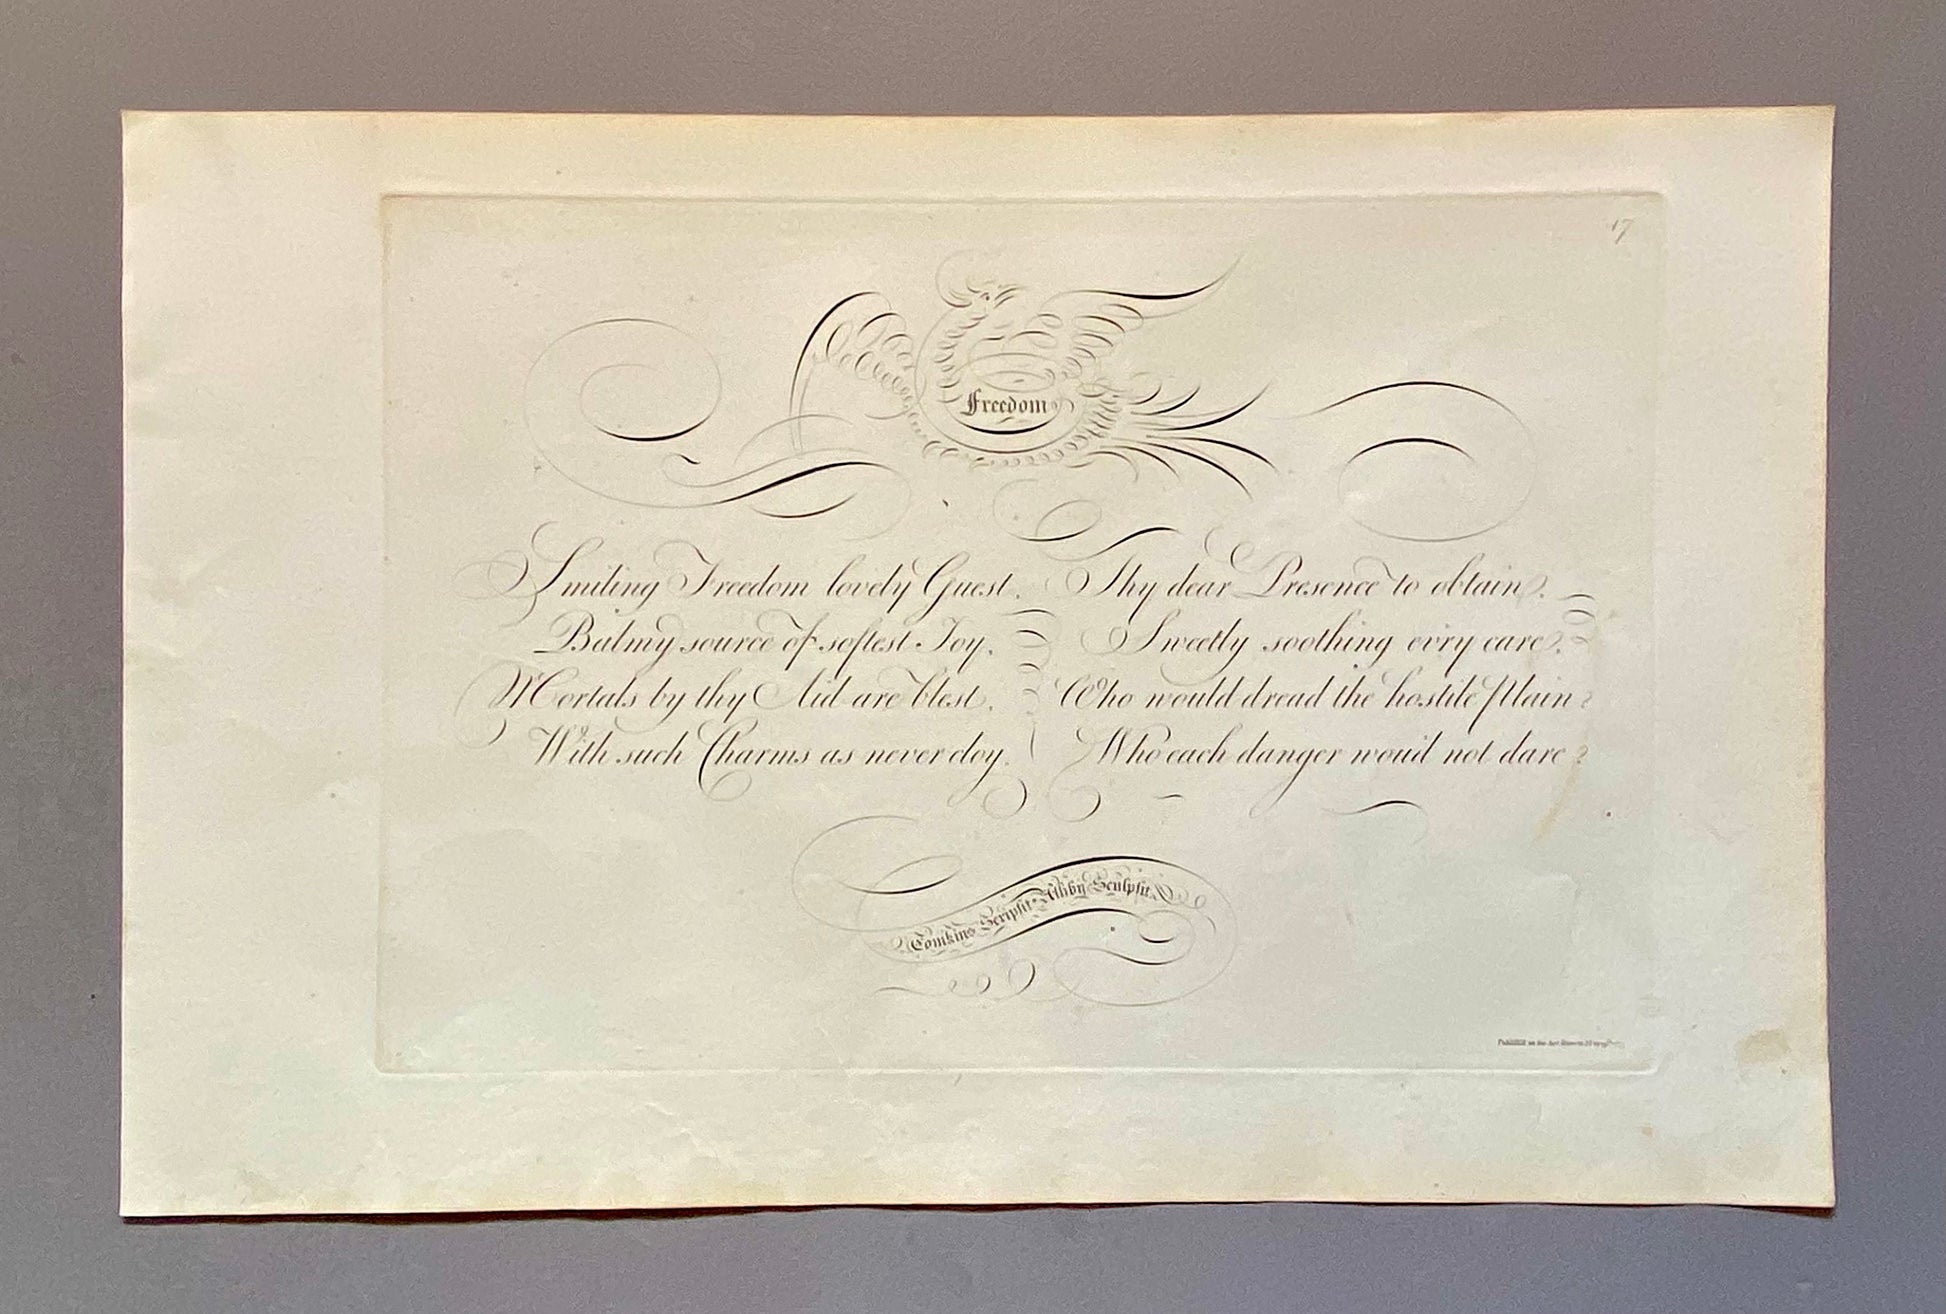 17
Freedom
Smiling Freedom lovely Guest.
Balmy source of softest Joy.
Mortals by thy Aid are blest.
With such Charms as never cloy.
Thy dear Presence to obtain.
Sweetly soothing ev'ry care.
Who would dread the hostile Plain?
Who each danger wou'd not dare?
Tomkins Scripsit. Ashby Sculpsit.
Published as the Act directs